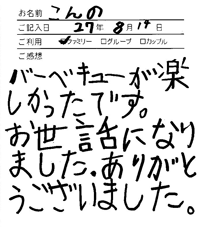 お名前 こんの
ご記入日 27年 8月 14日
ご利用 ☑ファミリー □グループ □カップル
ご感想
バーベキューが楽
しかったです。
お世話になり
ました。ありがと
うございました。